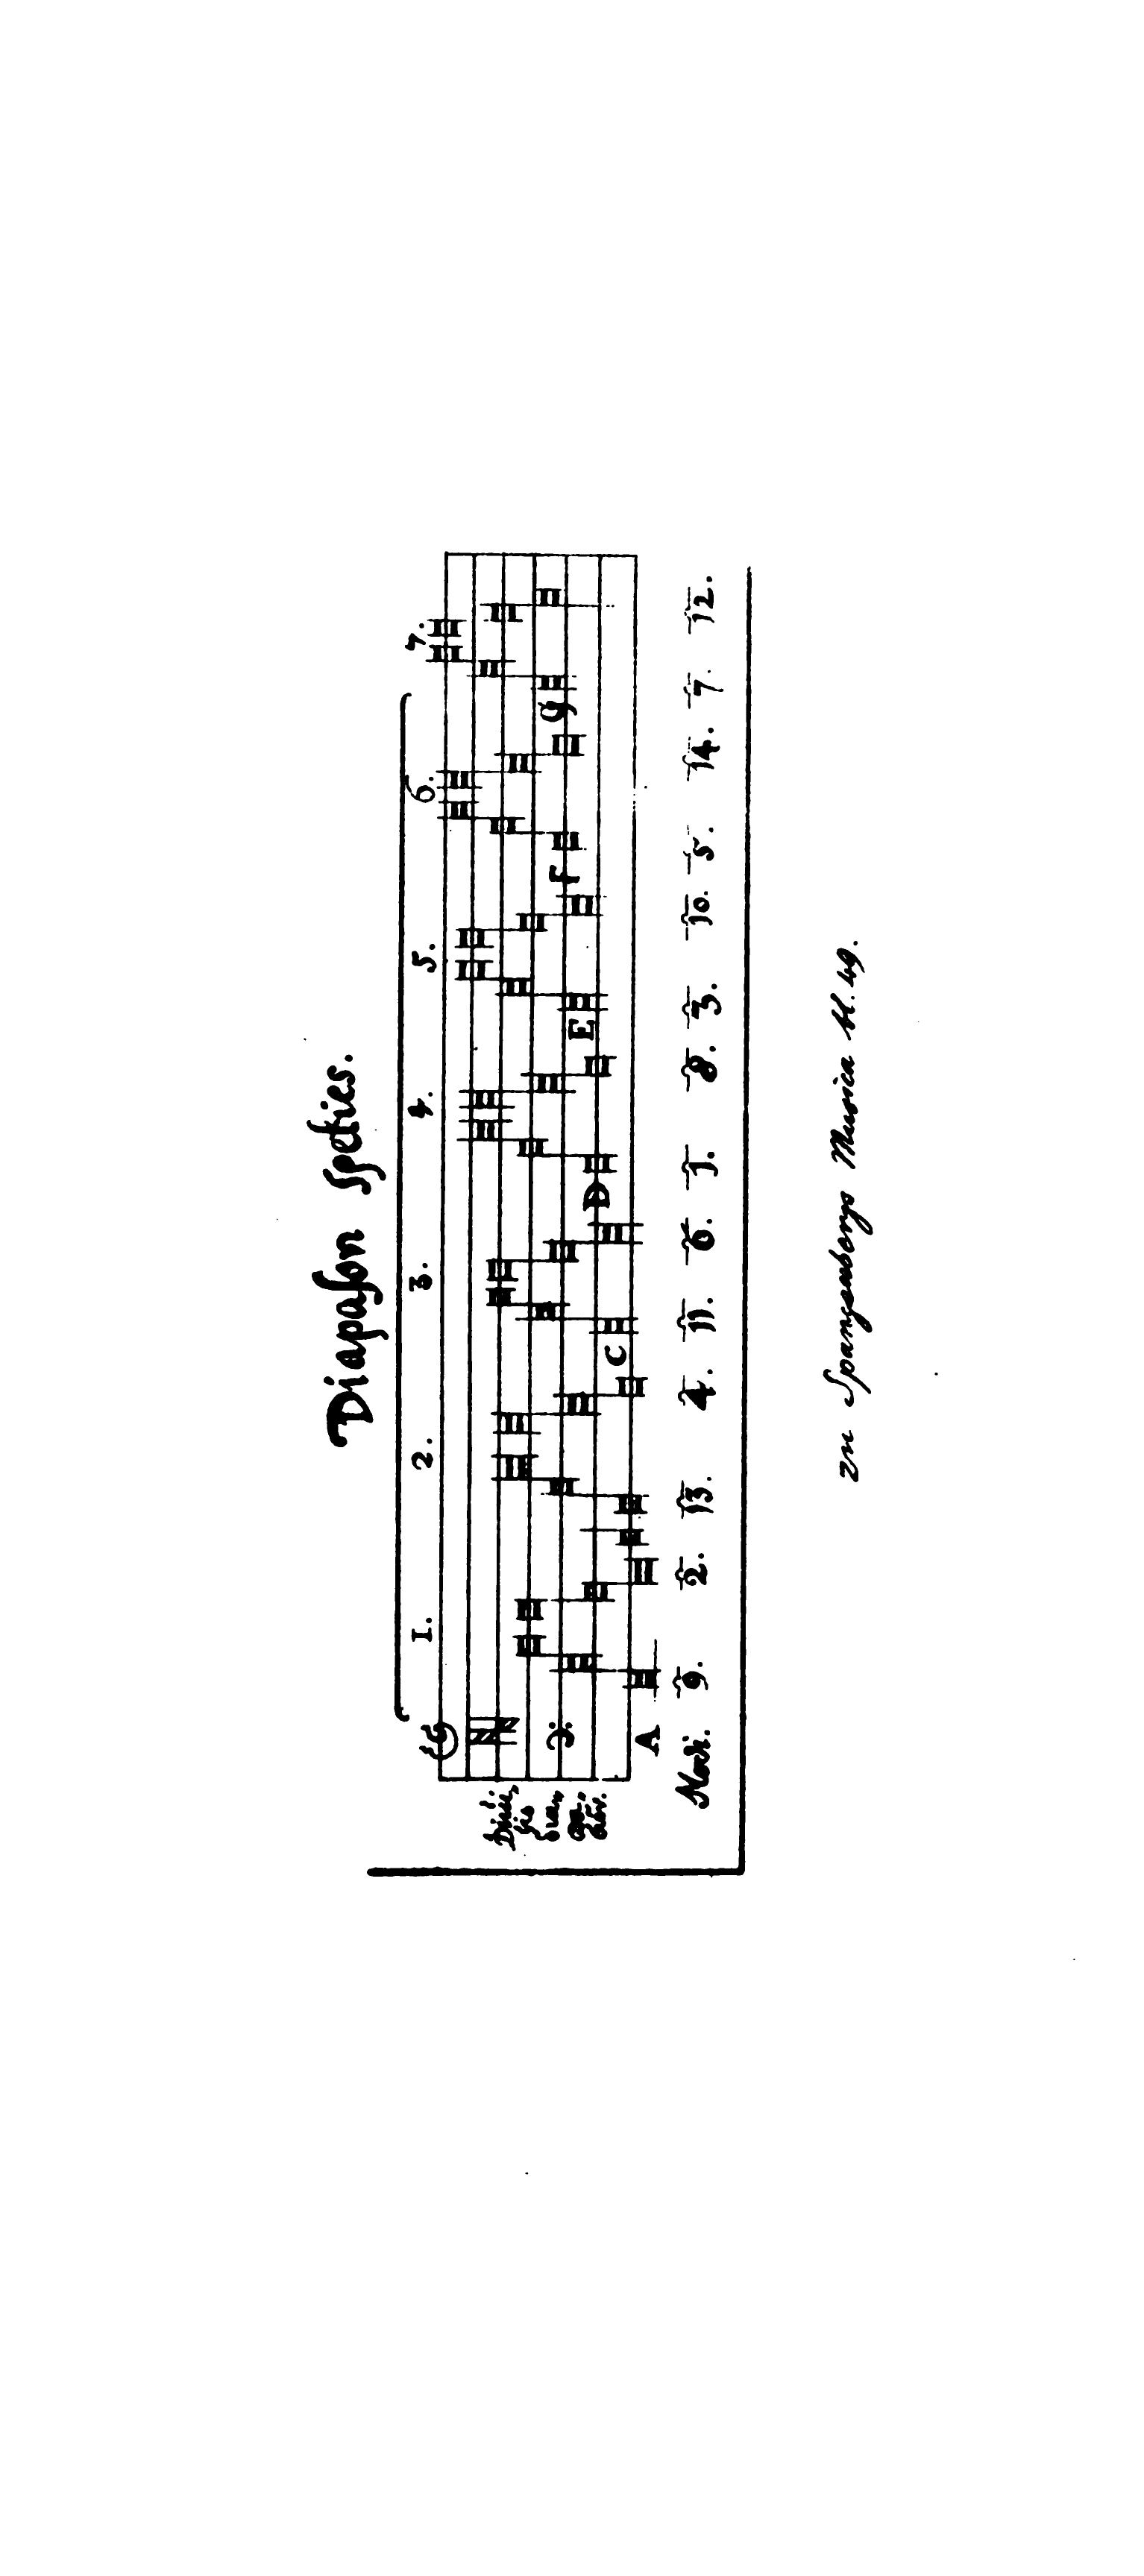 Diapason Speties.
1. 2. 3. 4. 5. 6. 7.
A C D E F G
Modi. 9. 2. 13. 4. 11. 6. 1. 8. 3. 10. 5. 14. 7. 12.
zu Spangenbergs Musica bl. 49.